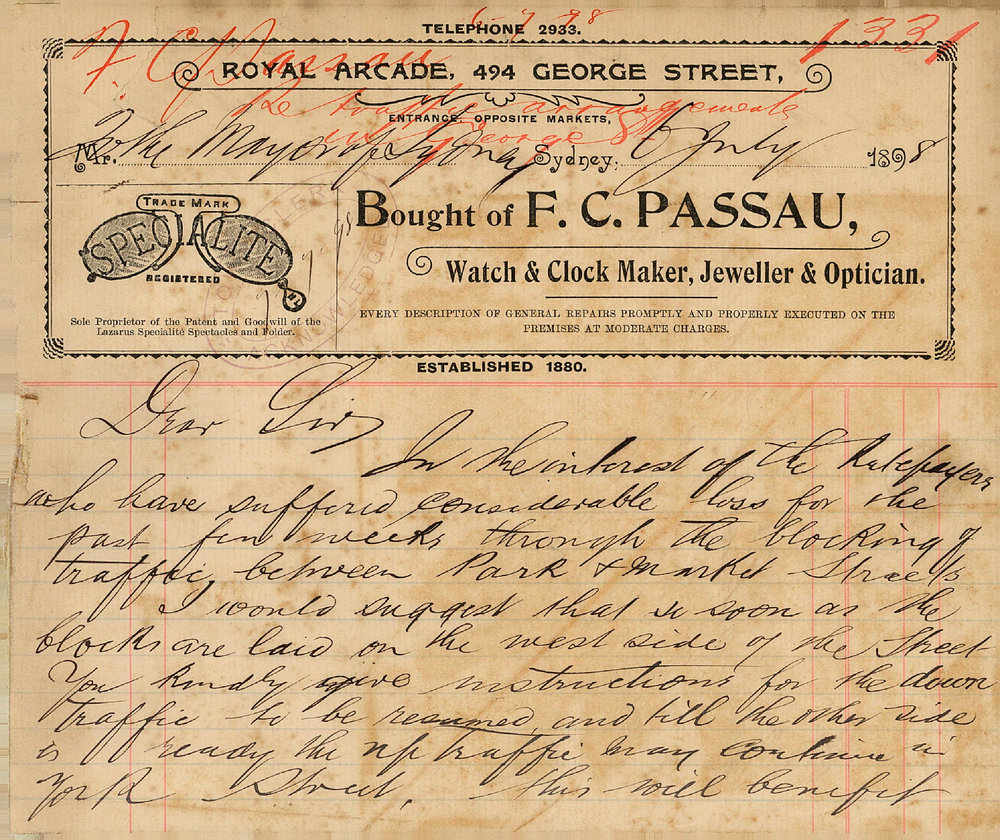 6 7 98
TELEPHONE 2933.
F. C. Passau 1331
ROYAL ARCADE, 494 GEORGE STREET,
Re traffic arrangements
ENTRANCE OPPOSITE MARKETS,
in George St
Mr. To the Mayor of Sydney Sydney, 6 July 1898
TRADE MARK
SPECIALITE
REGISTERED
Bought of F. C. PASSAU,
Watch & Clock Maker, Jeweller & Optician.
Sole Proprietor of the Patent and Goodwill of the
Lazarus Specialité Spectacles and Folder.
EVERY DESCRIPTION OF GENERAL REPAIRS PROMPTLY AND PROPERLY EXECUTED ON THE
PREMISES AT MODERATE CHARGES.
ACKNOWLEDGED
7 7 98
ESTABLISHED 1880.
Dear Sir
In the interest of the Ratepayers
who have suffered considerable loss for the
past few weeks through the blocking of
traffic, between Park & Market Streets
I would suggest that so soon as the
blocks are laid on the west side of the Street
You kindly give instructions for the down
traffic to be resumed and till the other side
is ready the up traffic may continue in
York Street, this will benefit